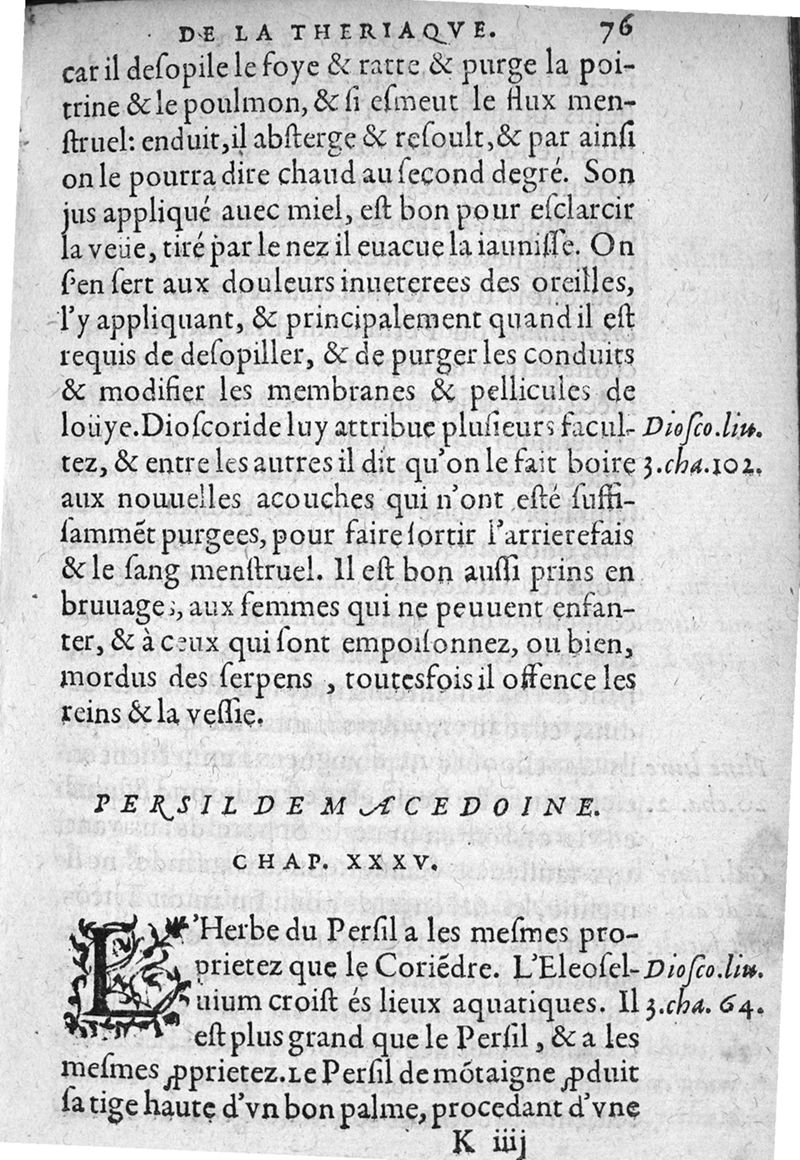 DE LA THERIAQVE. 76
car il deſopile le foye & ratte & purge la poi-
trine & le poulmon, & ſi eſmeut le flux men-
ſtruel: enduit, il abſterge & reſoult, & par ainſi
on le pourra dire chaud au ſecond degré. Son
jus appliqué auec miel, eſt bon pour eſclarcir
la veüe, tiré par le nez il euacue la iauniſſe. On
ſ'en ſert aux douleurs inueterees des oreilles,
l'y appliquant, & principalement quand il eſt
requis de deſopiller, & de purger les conduits
& modifier les membranes & pellicules de
loüye. Dioſcoride luy attribue pluſieurs facul- Dioſco.liu.
tez, & entre les autres il dit qu'on le fait boire 3.cha.102.
aux nouuelles acouches qui n'ont eſté ſuffi-
ſammẽt purgees, pour faire ſortir l'arrierefais
& le ſang menſtruel. Il eſt bon auſſi prins en
bruuages, aux femmes qui ne peuuent enfan-
ter, & à ceux qui ſont empoiſonnez, ou bien,
mordus des ſerpens, toutesfois il offence les
reins & la veſſie.
PERSIL DE MACEDOINE.
CHAP. XXXV.
L'Herbe du Perſil a les meſmes pro-
prietez que le Coriẽdre. L'Eleoſel- Dioſco.liu.
uium croiſt és lieux aquatiques. Il 3.cha. 64.
eſt plus grand que le Perſil, & a les
meſmes ꝓprietez. Le Perſil de mõtaigne ꝓduit
ſa tige haute d'vn bon palme, procedant d'vne
K iiij